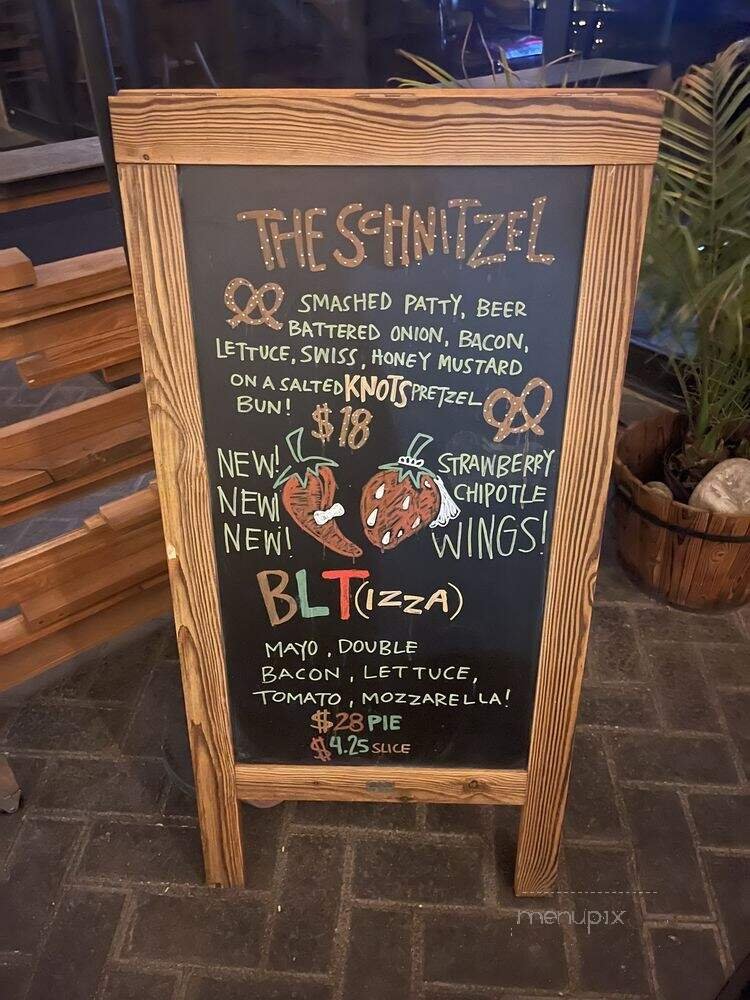 THE SCHNITZEL
SMASHED PATTY, BEER
BATTERED ONION, BACON,
LETTUCE, SWISS, HONEY MUSTARD
ON A SALTED KNOTS PRETZEL
BUN!
$18
NEW!
NEW!
NEW!
STRAWBERRY
CHIPOTLE
WINGS!
BLT(IZZA)
MAYO, DOUBLE
BACON, LETTUCE,
TOMATO, MOZZARELLA!
$28 PIE
$4.25 SLICE
menupix